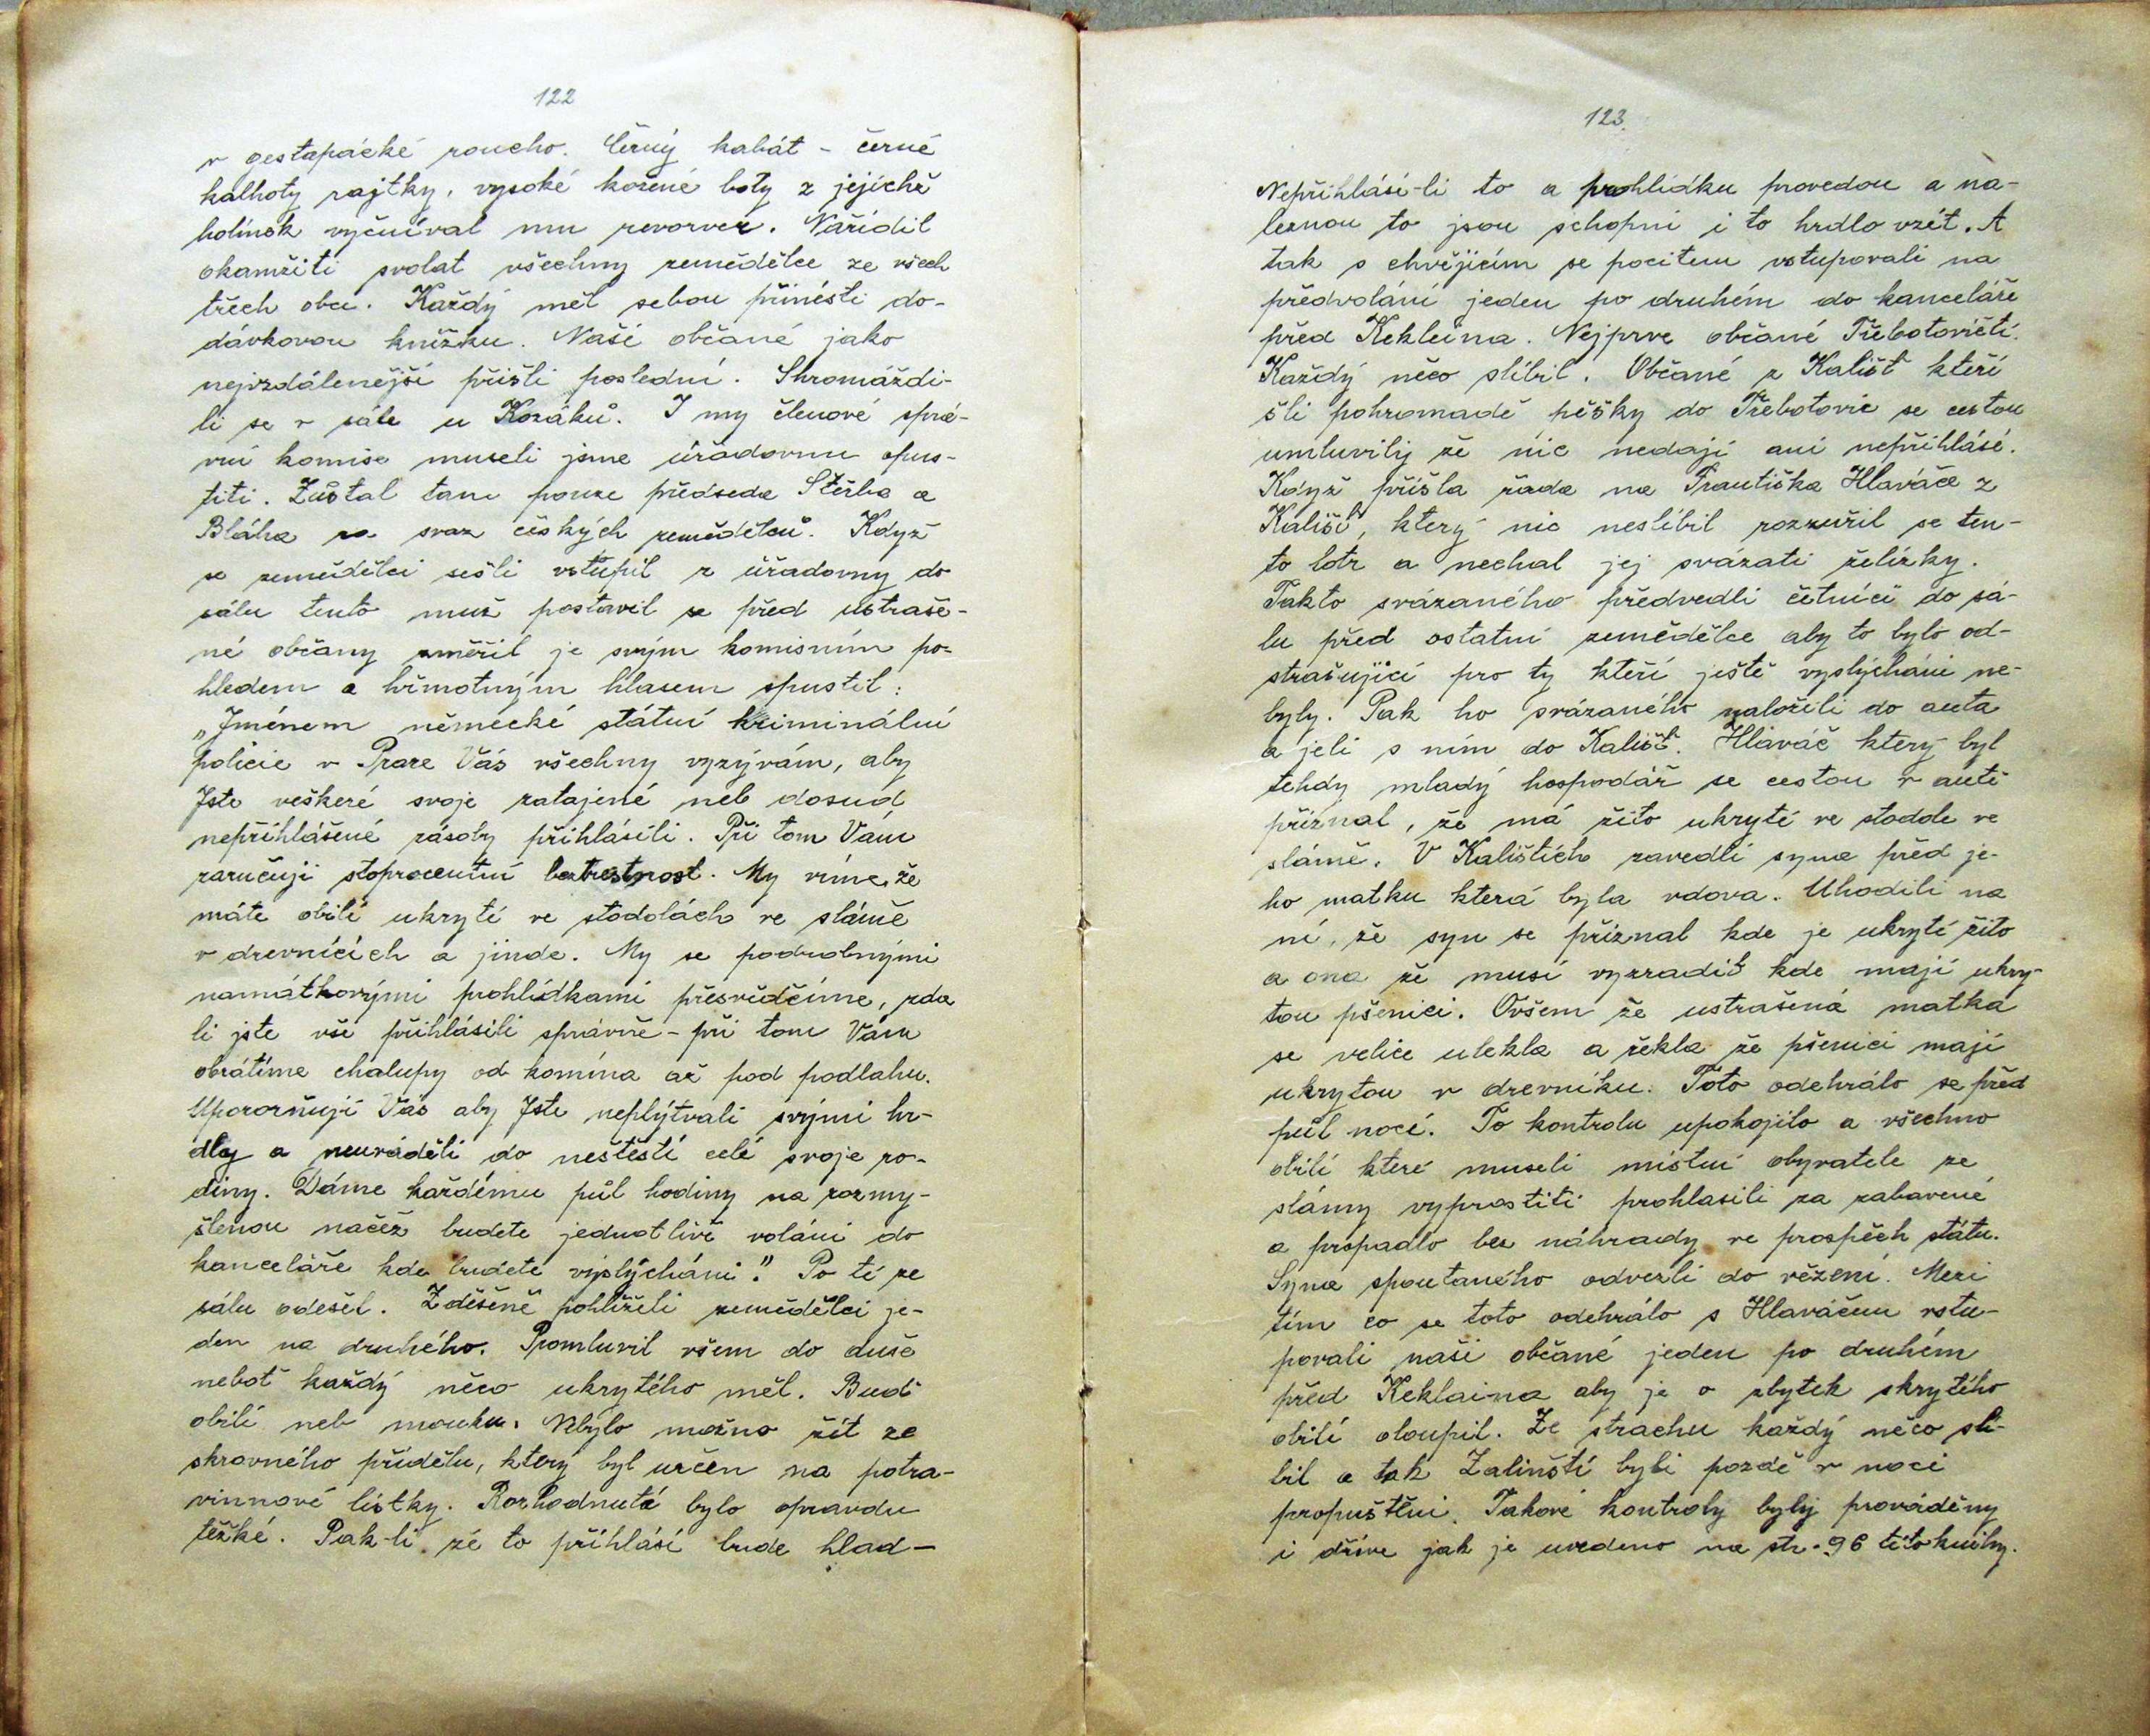 122
v gestapácké roucho. Černý kabát - černé
kalhoty rajtky, vysoké kožené boty z jejichž
holínek vyčníval mu revorver. Nařídil
okamžiti svolat všechny zemědělce ze všech
třech obcí. Každý měl sebou přinésti do-
dávkovou knížku. Naši občané jako
nejvzdálenější přišli poslední. Shromáždi-
li se v sále u Kozáků. I my členové sprá-
vní komise museli jsme úřadovnu opus-
titi. Zůstal tam pouze předseda Štěrba a
Bláha za svaz českých zemědělců. Když
se zemědělci sešli vstúpil z úřadovny do
sálu tento muž postavil se před ustraše-
né občany změřil je svým komisním po-
hledem a hřmotným hlasem spustil:
„Jménem německé státní kriminální
policie v Praze Vás všechny vyzývám, aby
Jste veškeré svoje zatajené neb dosud
nepřihlášené zásoby přihlásili. Při tom Vám
zaručuji stoprocentní beztrestnost. My víme, že
máte obilí ukryté ve stodolách ve slámě
v dřevnících a jinde. My se podrobnými
namátkovými prohlídkami přesvědčíme, zda
li jste vše přihlásili správně - při tom Vám
obrátíme chalupy od komína až pod podlahu.
Upozorňuji Vás aby Jste neplýtvali svými hr-
dly a neuváděli do neštěstí celé svoje ro-
diny. Dáme každému půl hodiny na rozmy-
šlenou načež budete jednotlivě voláni do
kanceláře kde budete vyslýcháni." Po té ze
sálu odešel. Zděšeně pohlíželi zemědělci je-
den na druhého. Promluvil všem do duše
neboť každý něco ukrytého měl. Buď
obilí neb mouku. Nebylo možno žít ze
skrovného přídělu, který byl určen na potra-
vinnové lístky. Rozhodnutá bylo opravdu
těžké. Pak-li že to přihlásí bude hlad-
123.
Nepřihlásí-li to a prohlídku provedou a na-
leznou to jsou schopni i to hrdlo vzít. A
tak s chvějícím se pocitem vstupovali na
předvolání jeden po druhém do kanceláře
před Kekleina. Nejprve občané Třebotovičtí.
Každý něco slíbil. Občané z Kališť kteří
šli pohromadě pěšky do Třebotovic se cestou
umluvily že nic nedají ani nepřihlásí.
Když přišla řada na Františka Hlaváče z
Kališť, který nic neslíbil rozzuřil se ten-
to lotr a nechal jej svázati želízky.
Takto svázaného předvedli četníci do sá-
lu před ostatní zemědělce aby to bylo od-
strašující pro ty kteří ještě vyslýcháni ne-
byly. Pak ho svázaného naložili do auta
a jeli s ním do Kališť. Hlaváč který byl
tehdy mladý hospodář se cestou v autě
přiznal, že má žito ukryté ve stodole ve
slámě. V Kalištích zavedli syna před je-
ho matku která byla vdova. Uhodili na
ní, že syn se přiznal kde je ukryté žito
a ona že musí vyzradit kde mají ukry-
tou pšenici. Ovšem že ustrašená matka
se velice ulekla a řekla že pšenici mají
ukrytou v dřevníku. Toto odehrálo se před
půl nocí. To kontrolu upokojilo a všechno
obilí které museli místní obyvatele ze
slámy vyprostiti prohlasili za zabavené
a propadlo bez náhrady ve prospěch státu.
Syna spoutaného odvezli do vězení. Mezi
tím co se toto odehrálo s Hlaváčem vstu-
povali naši občané jeden po druhém
před Keklaina aby je o zbytek skrytého
obilí oloupil. Ze strachu každý něco slí-
bil a tak Zalinští byli pozdě v noci
propuštěni. Takové kontroly byly prováděny
i dříve jak je uvedeno na str. 96 této knihy.